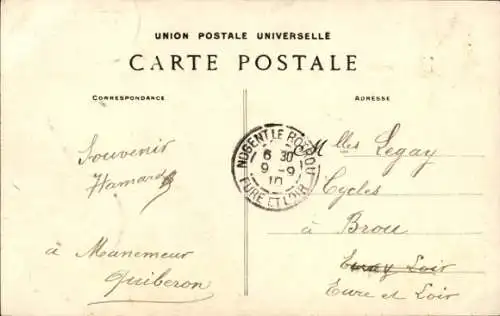 UNION POSTALE UNIVERSELLE
CARTE POSTALE
CORRESPONDANCE
ADRESSE
Souvenir
Hamard
à Manemeur
Quiberon
NOGENT LE ROTROU
6 30
9 - 9
10
EURE ET LOIR
Melles Legay
Cycles
à Brou
Loir
Eure et Loir